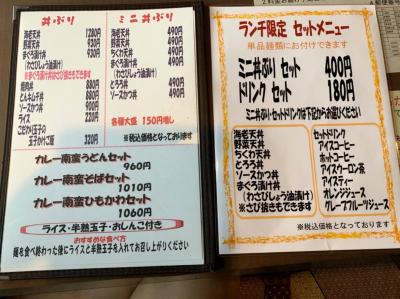 丼ぶり
海老天丼 1280円
野菜天丼 930円
ちくわ天丼 930円
まぐろ漬け丼 930円
(わさびしょう油漬け)
※まぐろ漬け丼はさび抜きもできます
焼肉丼 880円
とんキムチ丼 880円
ソースかつ丼 900円
ライス 220円
こだわり玉子の
玉子かけご飯 320円
ミニ丼ぶり
海老天丼 490円
野菜天丼 490円
ちくわ天丼 490円
まぐろ漬け丼 490円
(わさびしょう油漬け)
とろろ丼 490円
ソースかつ丼 490円
各種大盛 150円増し
※税込価格となっております
カレー南蛮うどんセット
960円
カレー南蛮そばセット
1010円
カレー南蛮ひもかわセット
1060円
ライス・半熟玉子・おしんこ付き
おすすめな食べ方
麺を食べ終わった後にライスと半熟玉子を入れてお召し上がりください
ランチ限定 セットメニュー
単品麺類にお付けできます
ミニ丼ぶり セット 400円
ドリンク セット 180円
ミニ丼ぶりセット・ドリンクセットは下記からお選びください
海老天丼
野菜天丼
ちくわ天丼
とろろ丼
ソースかつ丼
まぐろ漬け丼
(わさびしょう油漬け)
※さび抜きもできます
セットドリンク
アイスコーヒー
ホットコーヒー
アイスウーロン茶
アイスティー
オレンジジュース
グレープフルーツジュース
※税込価格となっております